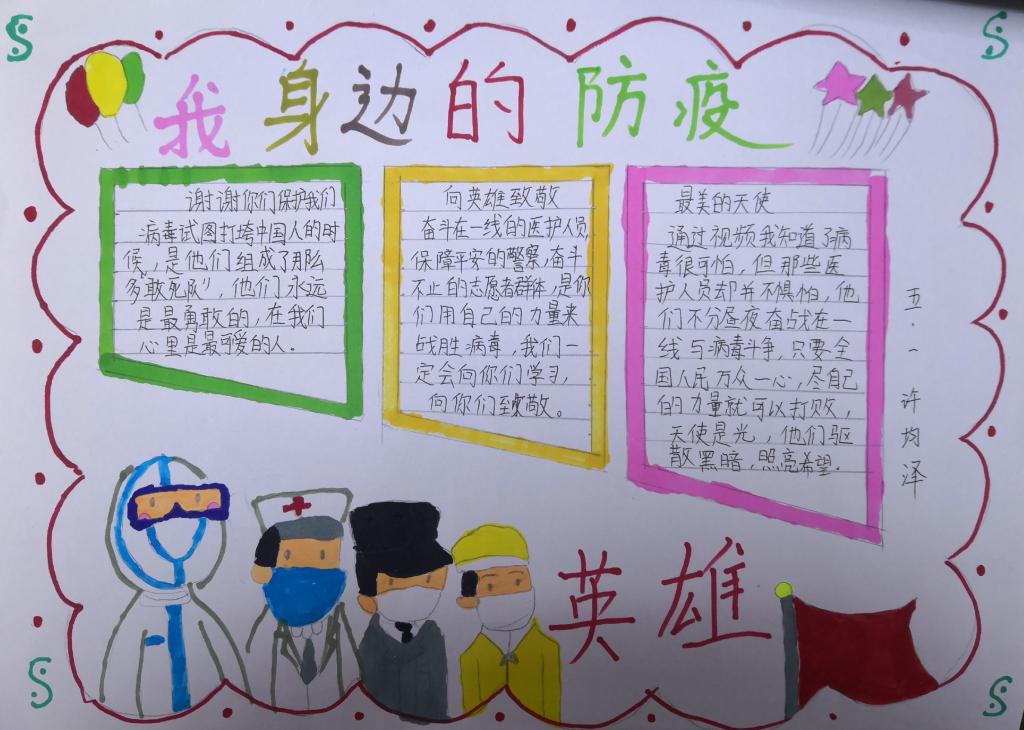 我身边的防疫
谢谢你们保护我们
病毒试图打垮中国人的时
候,是他们组成了那么
多敢死队",他们永远
是最勇敢的,在我们
心里是最可爱的人.
向英雄致敬
奋斗在一线的医护人员
保障平安的警察,奋斗
不止的志愿者群体,是你
们用自己的力量来
战胜病毒,我们一
定会向你们学习,
向你们致敬。
最美的天使
通过视频我知道了病
毒很可怕,但那些医
护人员却并不惧怕,他
们不分昼夜奋战在一
线与病毒斗争,只要全
国人民万众一心,尽自己
的力量就可以打败,
天使是光,他们驱
散黑暗,照亮希望.
五·一 许均泽
英雄